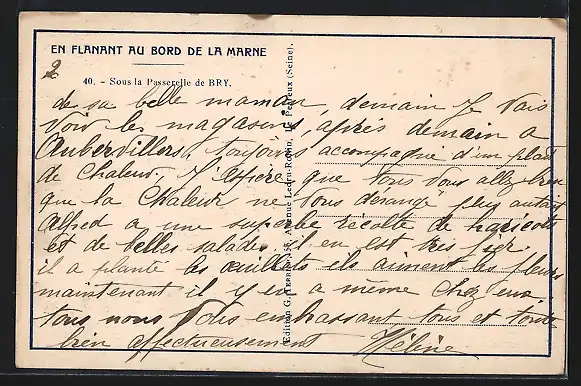 EN FLANANT AU BORD DE LA MARNE
2
40. - Sous la Passerelle de BRY.
de sa belle maman, demain je vais
voir les magasins, après demain a
Aubervillers, toujours accompagné d'un plat
de Chaleur, J'espere que tous vous allez bien
que la Chaleur ne vous dérange pas autant
Alfred a une superbe récolte de haricots
et de belles salades il en est tres fier
il a planté les œuillets ils aiment les fleurs
maintenant il y en a même chez eux.
tous nous vous embrassant tous et toute
bien affectueusement Hélène
Edition G. , Avenue Ledru-Rollin, Le Perreux (Seine).